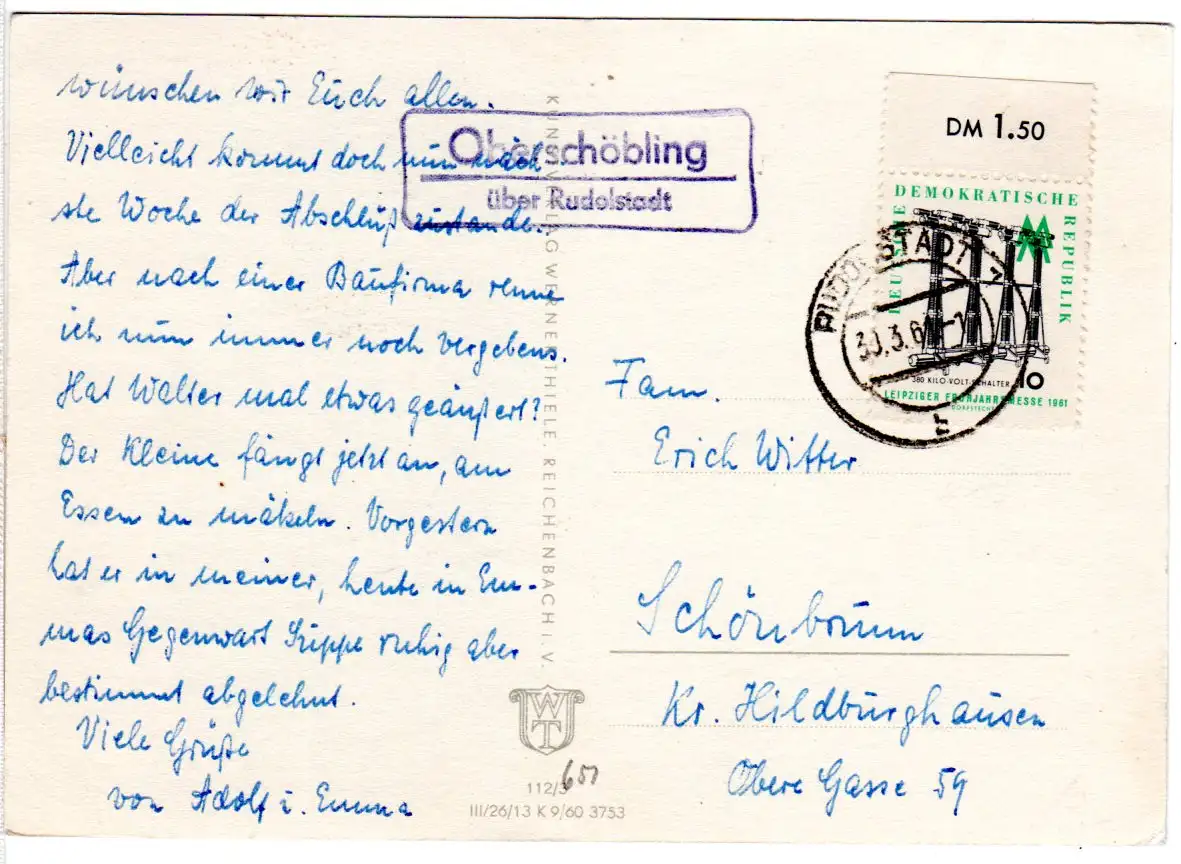 wünschen wir Euch allen.
Vielleicht kommt doch nun näch-
ste Woche der Abschluß zustande.
Aber nach einer Baufirma renne
ich nun immer noch vergebens.
Hat Walter mal etwas geäußert?
Der Kleine fängt jetzt an, am
Essen zu mäkeln. Vorgestern
hat er in meiner, heute in Em-
mas Gegenwart Suppe ruhig aber
bestimmt abgelehnt.
Viele Grüße
von Adolf u. Emma
Oberschöbling
über Rudolstadt
KUNSTVERLAG WERNER THIELE, REICHENBACH i. V.
WT
112/3
651
III/26/13 K 9/60 3753
DM 1.50
DEUTSCHE DEMOKRATISCHE REPUBLIK
MM
380 KILO-VOLT-SCHALTER
10
LEIPZIGER FRÜHJAHRSMESSE 1961
RUDOLSTADT 1
30.3.61-1
Fam.
Erich Witter
Schönbrunn
Kr. Hildburghausen
Obere Gasse 59